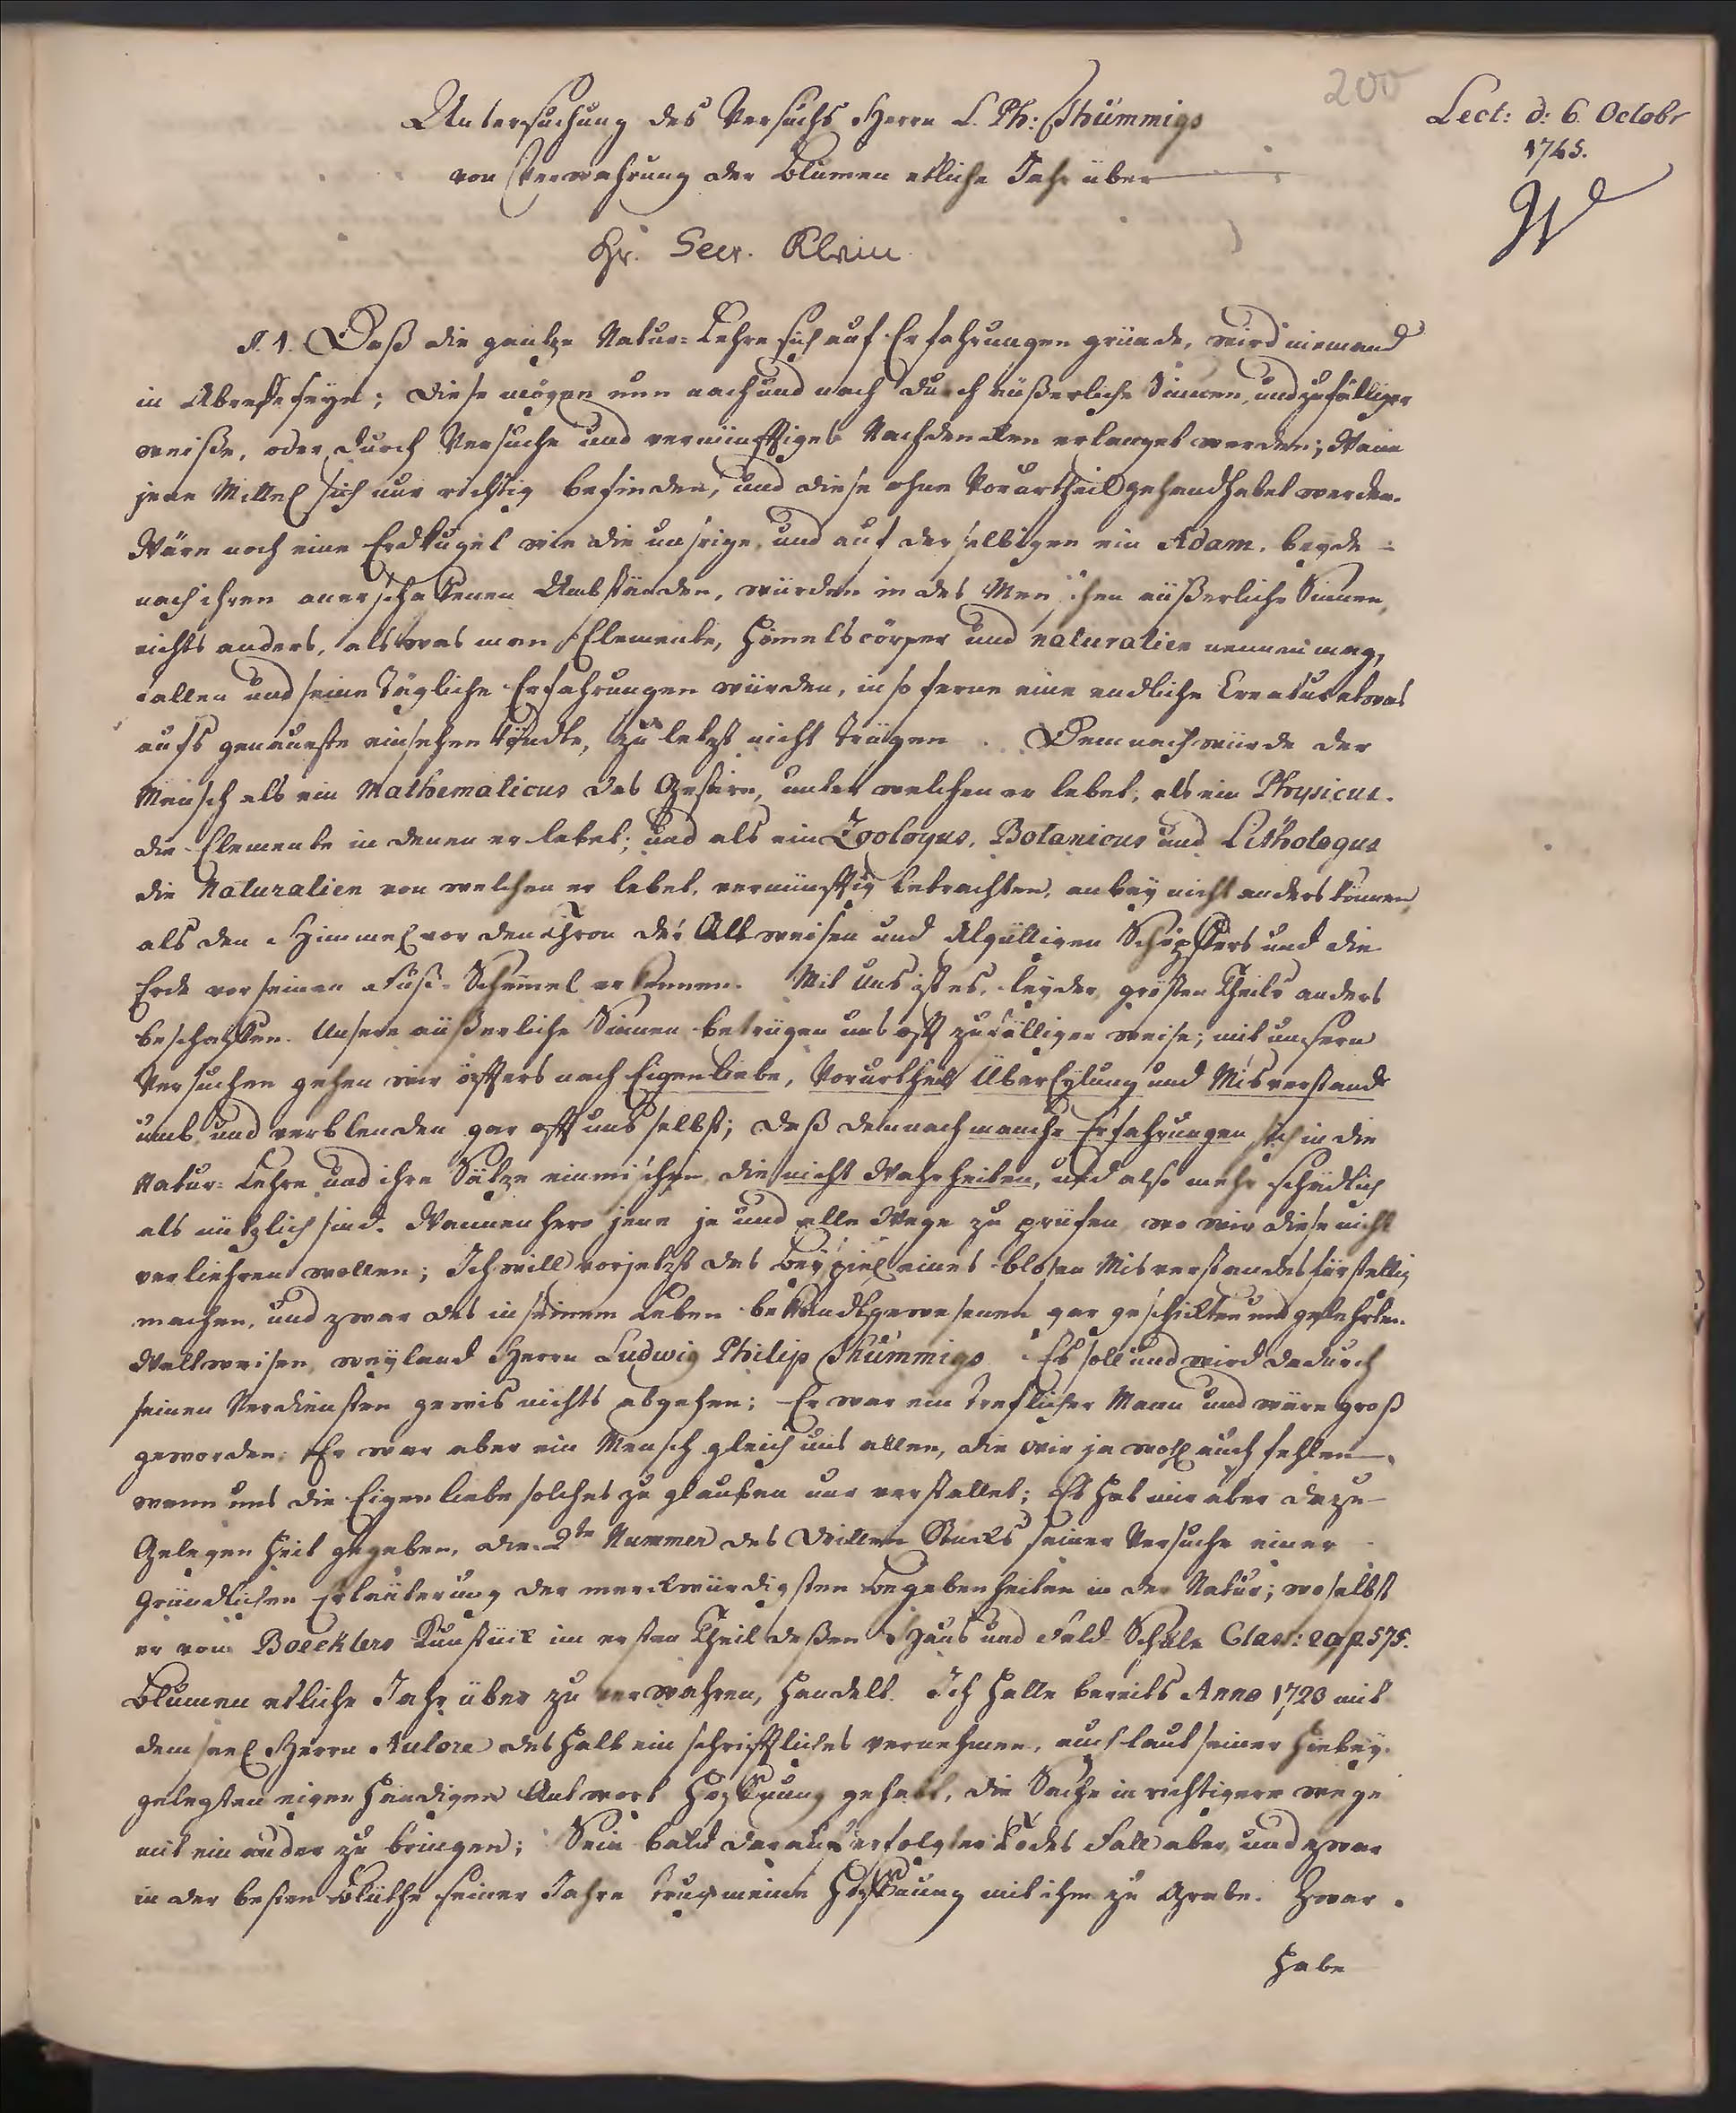 200
Lect: d: 6. Octobr
1745.
W
Untersuchung des Versuchs Herrn L. Ph: Thümmigs
von Verwahrung der Blumen etliche Jahr über
Hr. Secr. Klein
§. 1. Daß die gantze Natur-Lehre sich auf Erfahrungen gründe, wird niemand
in Abrede seyn; diese mögen nun nach und nach durch äußerliche Sinnen, und zufälliger
weiße, oder durch Versuche und vernünfftiges Nachdencken erlanget werden; Wenn
jene Mittel sich nur richtig befinden, und diese ohne Vorurtheil gehandhabet werden.
Wäre noch eine Erdkugel wie die unsrige, und auf derselbigen ein Adam, beyde
nach ihren anerschaffenen Umbständen, würden in des Menschen äußerliche Sinnen,
nichts anders, als was man Elemente, Himelscörper und naturalien nennen mag,
fallen und seine tägliche Erfahrungen würden, in so ferne eine endliche Creatur etwas
aufs genaueste einsehen köndte, zu letzt nicht trügen. Demnach würde der
Mensch als ein Mathematicus das Gestirn, unter welchen er lebet; als ein Physicus
die Elemente in denen er lebet; und als ein Zoologus, Botanicus und Lithologus
die Naturalien von welchen er lebet, vernünfftig betrachten, anbey nicht anders können,
als den Himmel vor den Thron des Allweisen und Algütigen Schöpffers und die
Erde vor seinen Fuß-Schemel erkennen. Mit Uns ist es, leyder, grösten Theils anders
beschaffen. Unsere äußerliche Sinnen betrügen uns offt zufälliger weise; mit unsern
Versuchen gehen wir öffters nach Eigenliebe, Vorurtheil Übereylung und Misverstande
umb, und verblenden gar offt uns selbst; daß demnach manche Erfahrungen sich in die
Natur-Lehre und ihre Sätze einmischen, die nicht Wahrheiten, und also mehr schädlich
als nützlich sind. Wannenhero jene je und alle Wege zu prüfen, wo wir diese nicht
verliehren wollen; Ich will vorjetzt das Beyspiel eines blosen Misverstandes fürstellig
machen, und zwar des in seinem Leben bekandtgewesenen gar geschickten und gelehrten
Weltweisen, weyland Herrn Ludwig Philip Thümmigs. Es soll und wird dadurch
seinen Verdiensten gewis nichts abgehen; Er war ein treflicher Mann und wäre groß
geworden. Er war aber ein Mensch gleich uns allen, die wir ja wohl auch fehlen,
wenn uns die Eigenliebe solches zu glauben nur verstattet; Es hat mir aber dazu
Gelegenheit gegeben, die 2te Nummer des dritten Stücks seiner Versuche einer
gründlichen Erläuterung der merckwürdigsten Begebenheiten in der Natur; woselbst
er von Boecklers Kunstück im ersten Theil deßen Haus und Feld-Schule Class: 2 a p. 575.
Blumen etliche Jahr über zu verwahren, handelt. Ich hatte bereits Anno 1723 mit
dem seel Herrn Autore deshalb ein schrifftliches vernehmen, auch laut seiner hiebey
gelegten eigenhändigen Antwort Hoffnung gehabt, die Sache in richtigere wege
mit einander zu bringen; Sein bald darauf erfolgter Todes Fall aber, und zwar
in der besten Blüthe seiner Jahre trug meine Hoffnung mit ihm zu Grabe. Zwar
habe